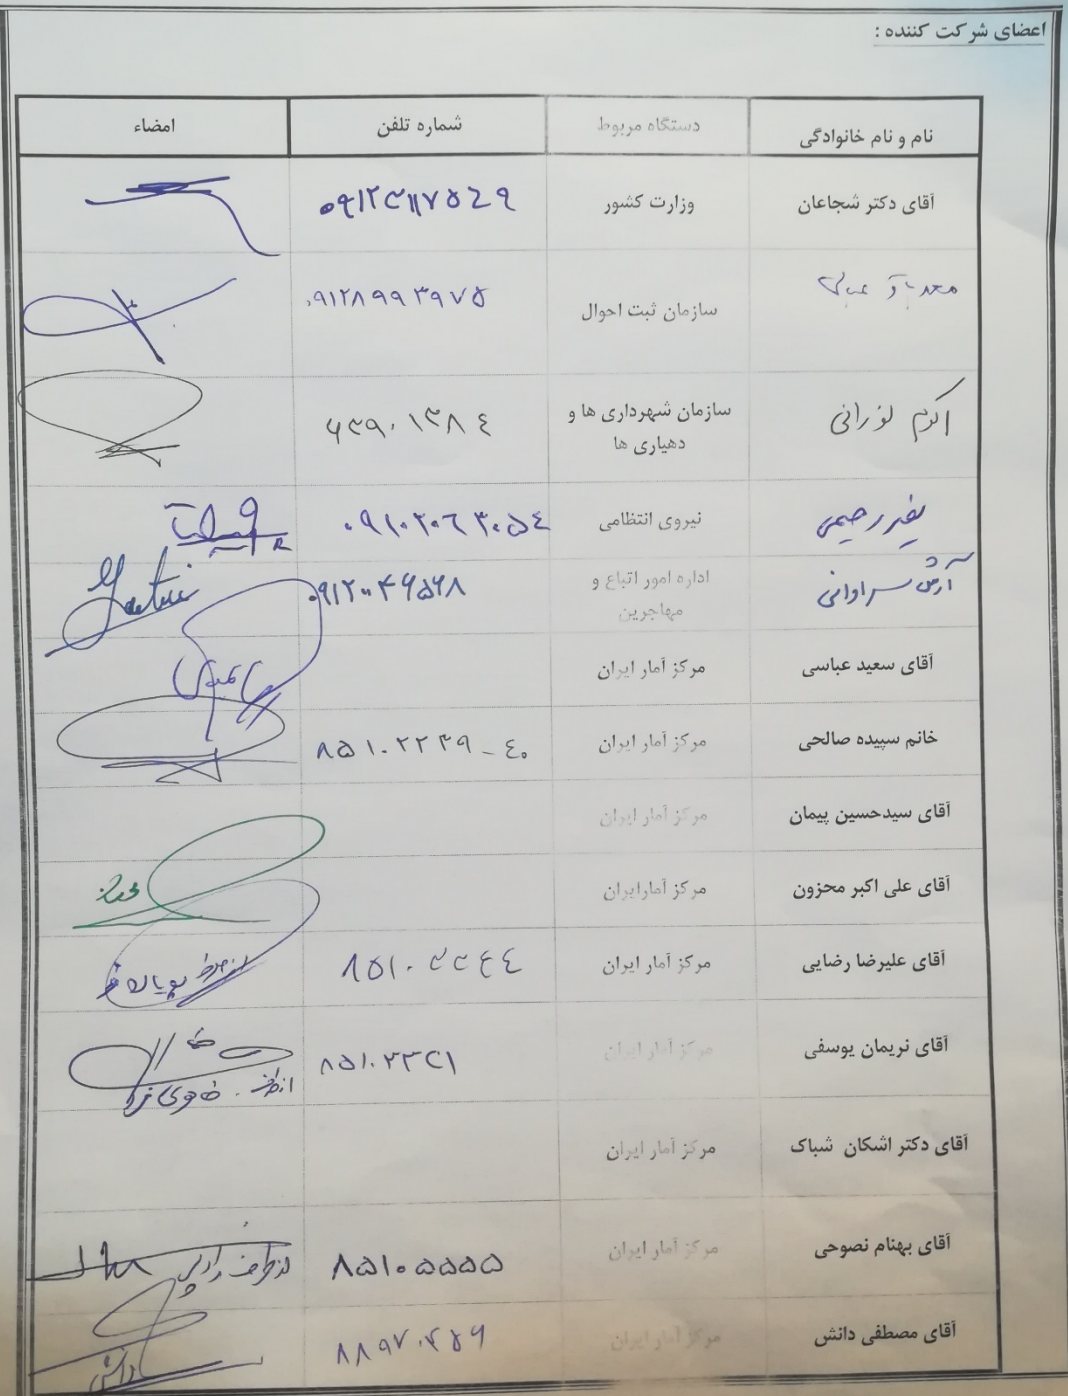 اعضای شرکت کننده :
نام و نام خانوادگی دستگاه مربوط شماره تلفن امضاء
آقای دکتر شجاعان وزارت کشور
سازمان ثبت احوال ۰۹۱۲۸۹۹۳۹۷۵
اکرم نورانی سازمان شهرداری ها و
دهیاری ها ۶۳۹۰۱۳۸۴
رحیمی نیروی انتظامی ۰۹۱۰۲۰۶۳۰۵۴
آرش سراوانی اداره امور اتباع و
مهاجرین ۰۹۱۲۰۰۴۶۵۶۸
آقای سعید عباسی مرکز آمار ایران
خانم سپیده صالحی مرکز آمار ایران ۸۵۱۰۲۲۳۹-۴۰
آقای سیدحسین پیمان مرکز آمار ایران
آقای علی اکبر محزون مرکز آمارایران
آقای علیرضا رضایی مرکز آمار ایران ۸۵۱۰۳۳۴۴
آقای نریمان یوسفی مرکز آمار ایران ۸۵۱۰۳۳۲۱
آقای دکتر اشکان شباک مرکز آمار ایران
آقای بهنام نصوحی مرکز آمار ایران ۸۵۱۰۵۵۵۵
آقای مصطفی دانش مرکز آمار ایران ۸۸۹۷۰۳۵۶ دانش